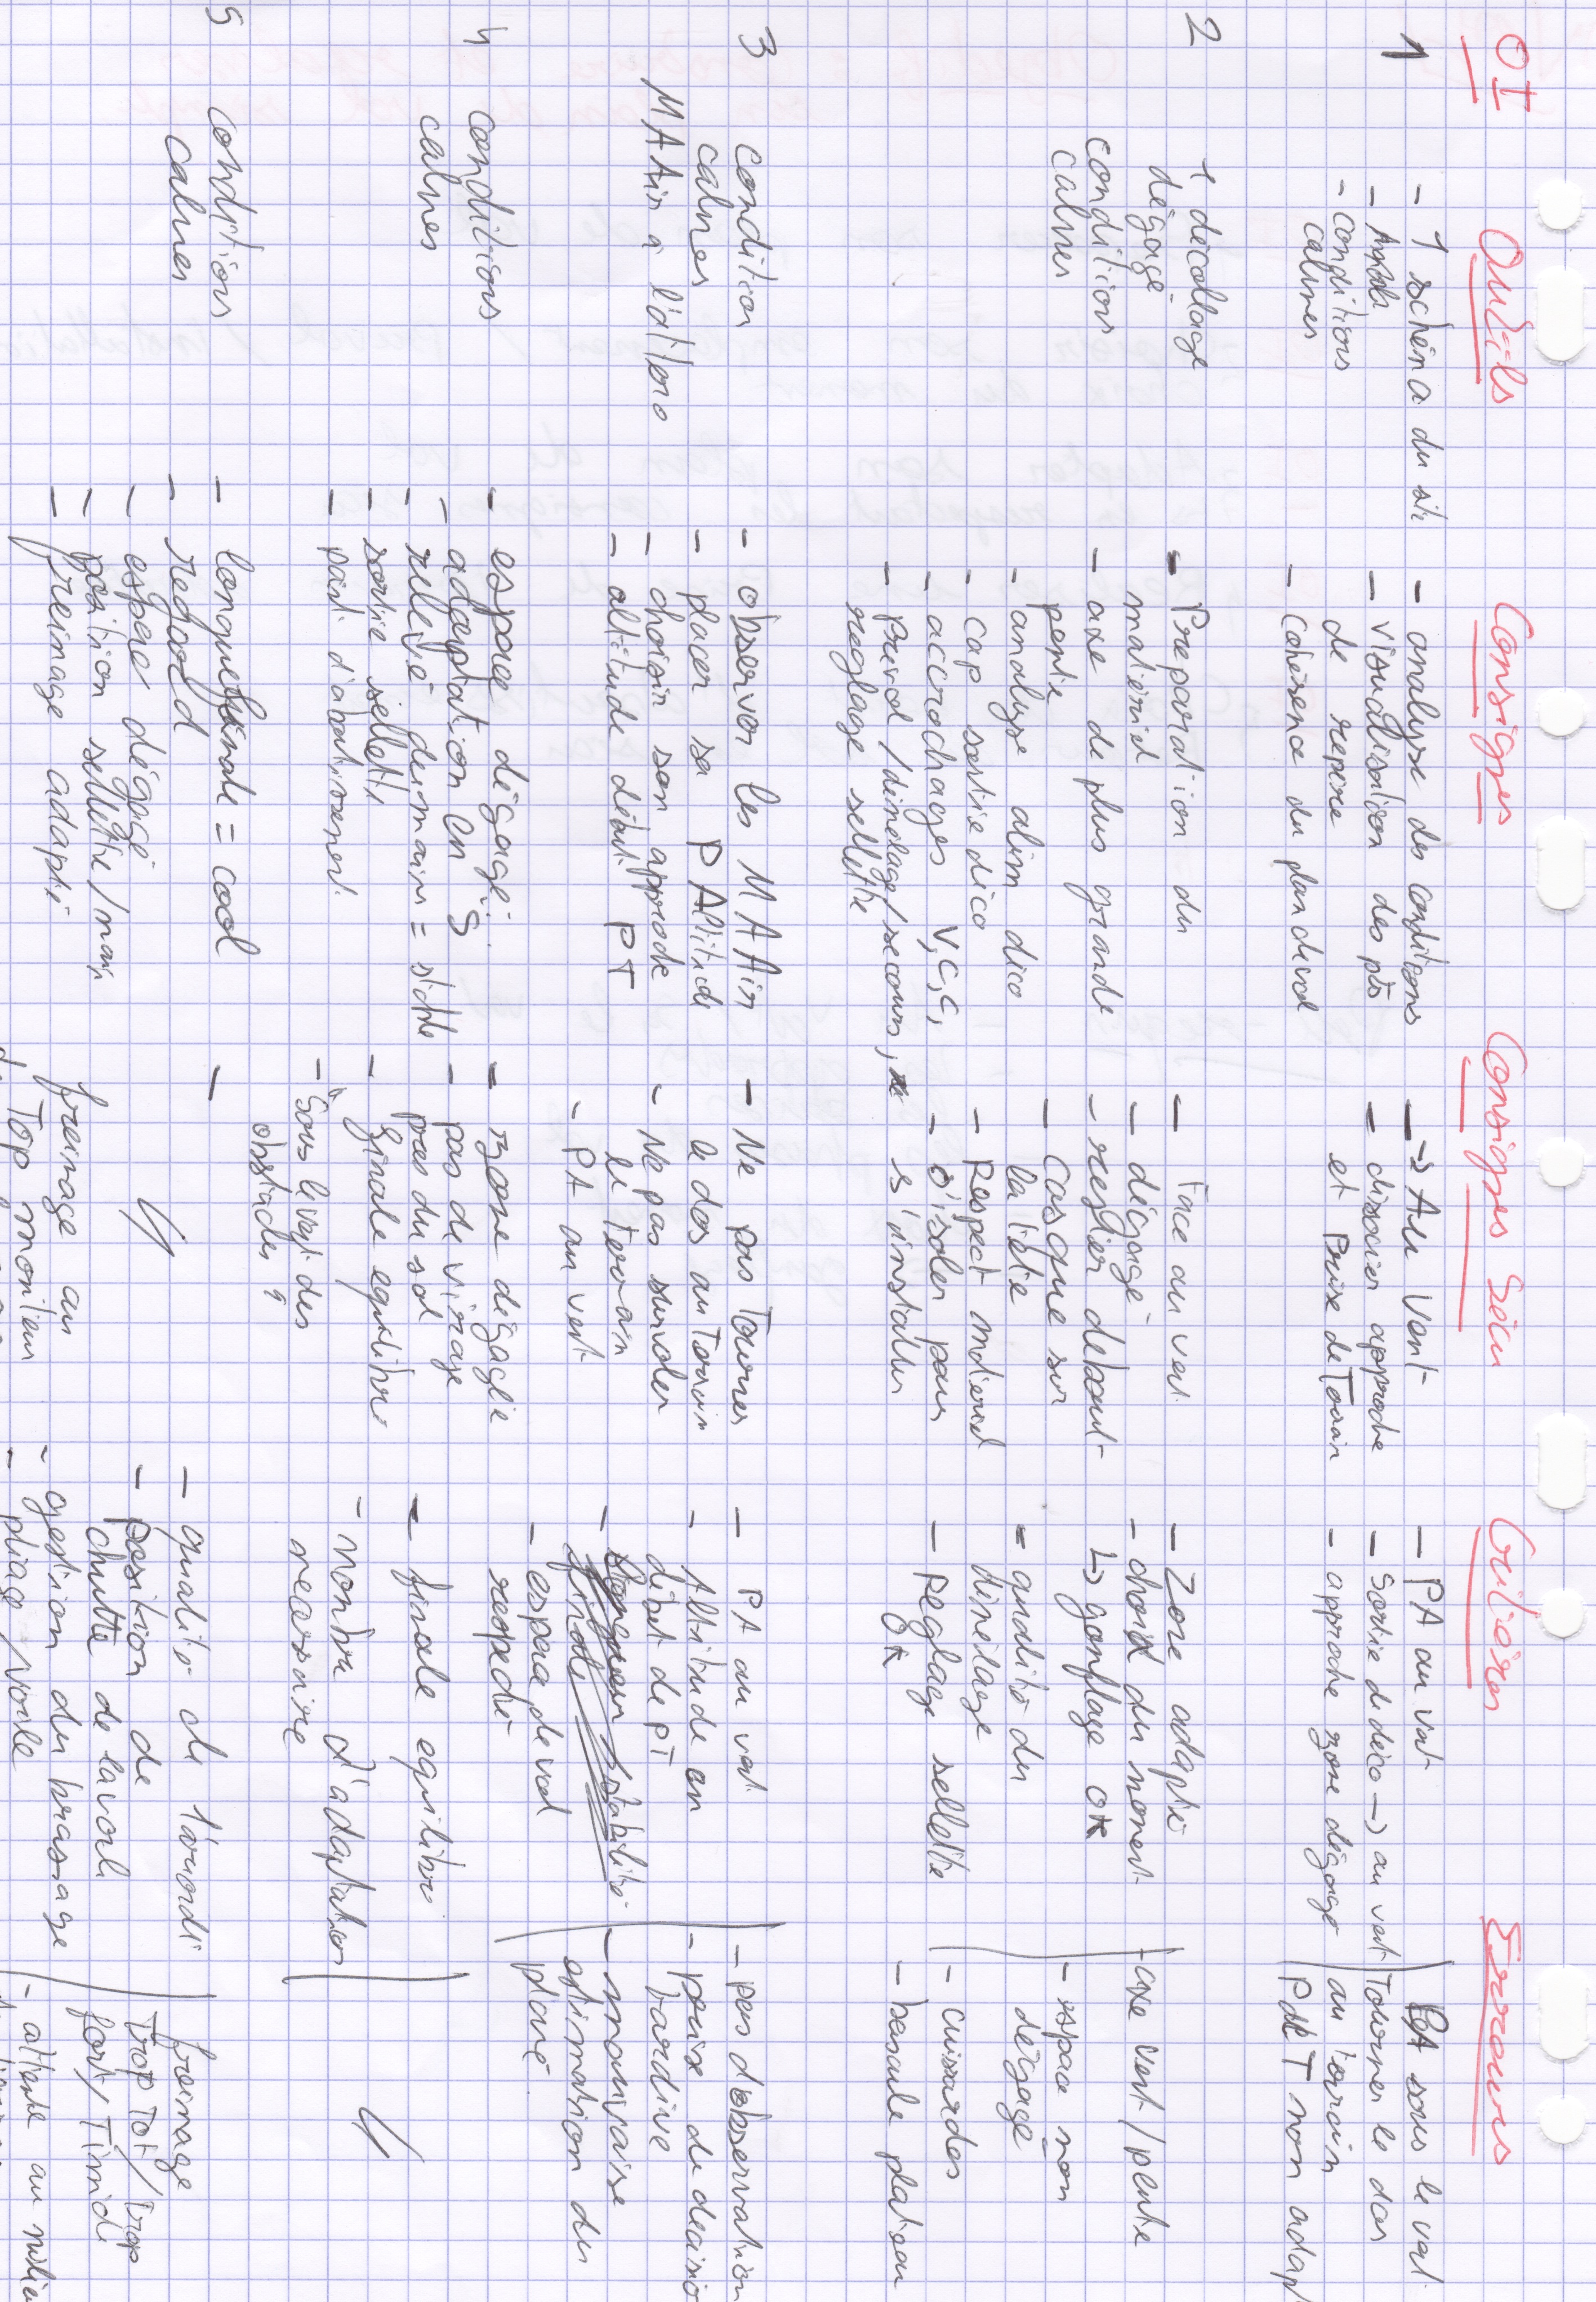 OI Outils Consignes Consignes Sécu Critères Erreurs
1
- 1 schéma du site
- conditions
calmes
- analyse des conditions
- visualisation des pts
de repère
- cohérence du plan de vol
-> Au Vent
- dissocier approche
et Prise de Terrain
- PA au vent
- Sortie de déco -> au vent
- approche zone dégagé
PA sous le vent
Tourner le dos
au terrain
PdeT non adapt
2
1 décollage
dégagé
conditions
calmes
- Préparation du
matériel
- axe de plus grande
pente
- analyse alim déco
- cap sortie déco
- accrochages V,C,C,
- prévol / démêlage / secours,
reglage sellette
- Face au vent
- dégagé
- rester debout
- Casque sur
la tête
- Respect matériel
- s'isoler pour
s'installer
- Zone adaptée
- choix du moment
↳ gonflage OK
- qualité du
démêlage
- Réglage sellette
OK
- axe vent / pente
- espace non
dégagé
- cuissardes
- bascule plateau
3
condition
calmes
MAAin à l'attero
- observer les MAAin
- placer sa PAltitude
- choisir son approche
- altitude début PT
- Ne pas Tourner
le dos au Terrain
- Ne pas survoler
le terrain
- PA au vent
- PA au vent
- Altitude en
début de PT
- espace de vol
respecté
- pas d'observation
- prise de décisio
tardive
- mauvaise
estimation du
plané.
4
conditions
calmes
- espace dégagé
- adaptation en S
- relevé demain = stable
- sortie sellette
- point d'aboutissement
- zone dégagée
- pas de virage
près du sol
- finale équilibre
- Sous le vent des
obstacles ?
- finale équilibre
- nombre d'adaptation
nécessaire
5
conditions
calmes
- longue finale = cool
- regard
- espace dégagé
- position sellette / main
- freinage adapté
-
freinage au
Top moniteur
- qualité de l'arrondi
- position de
chutte de la voile
- gestion du brassage
- pliage / voile
freinage
Trop Tot / Trop
fort / Timide
- attente au milieu